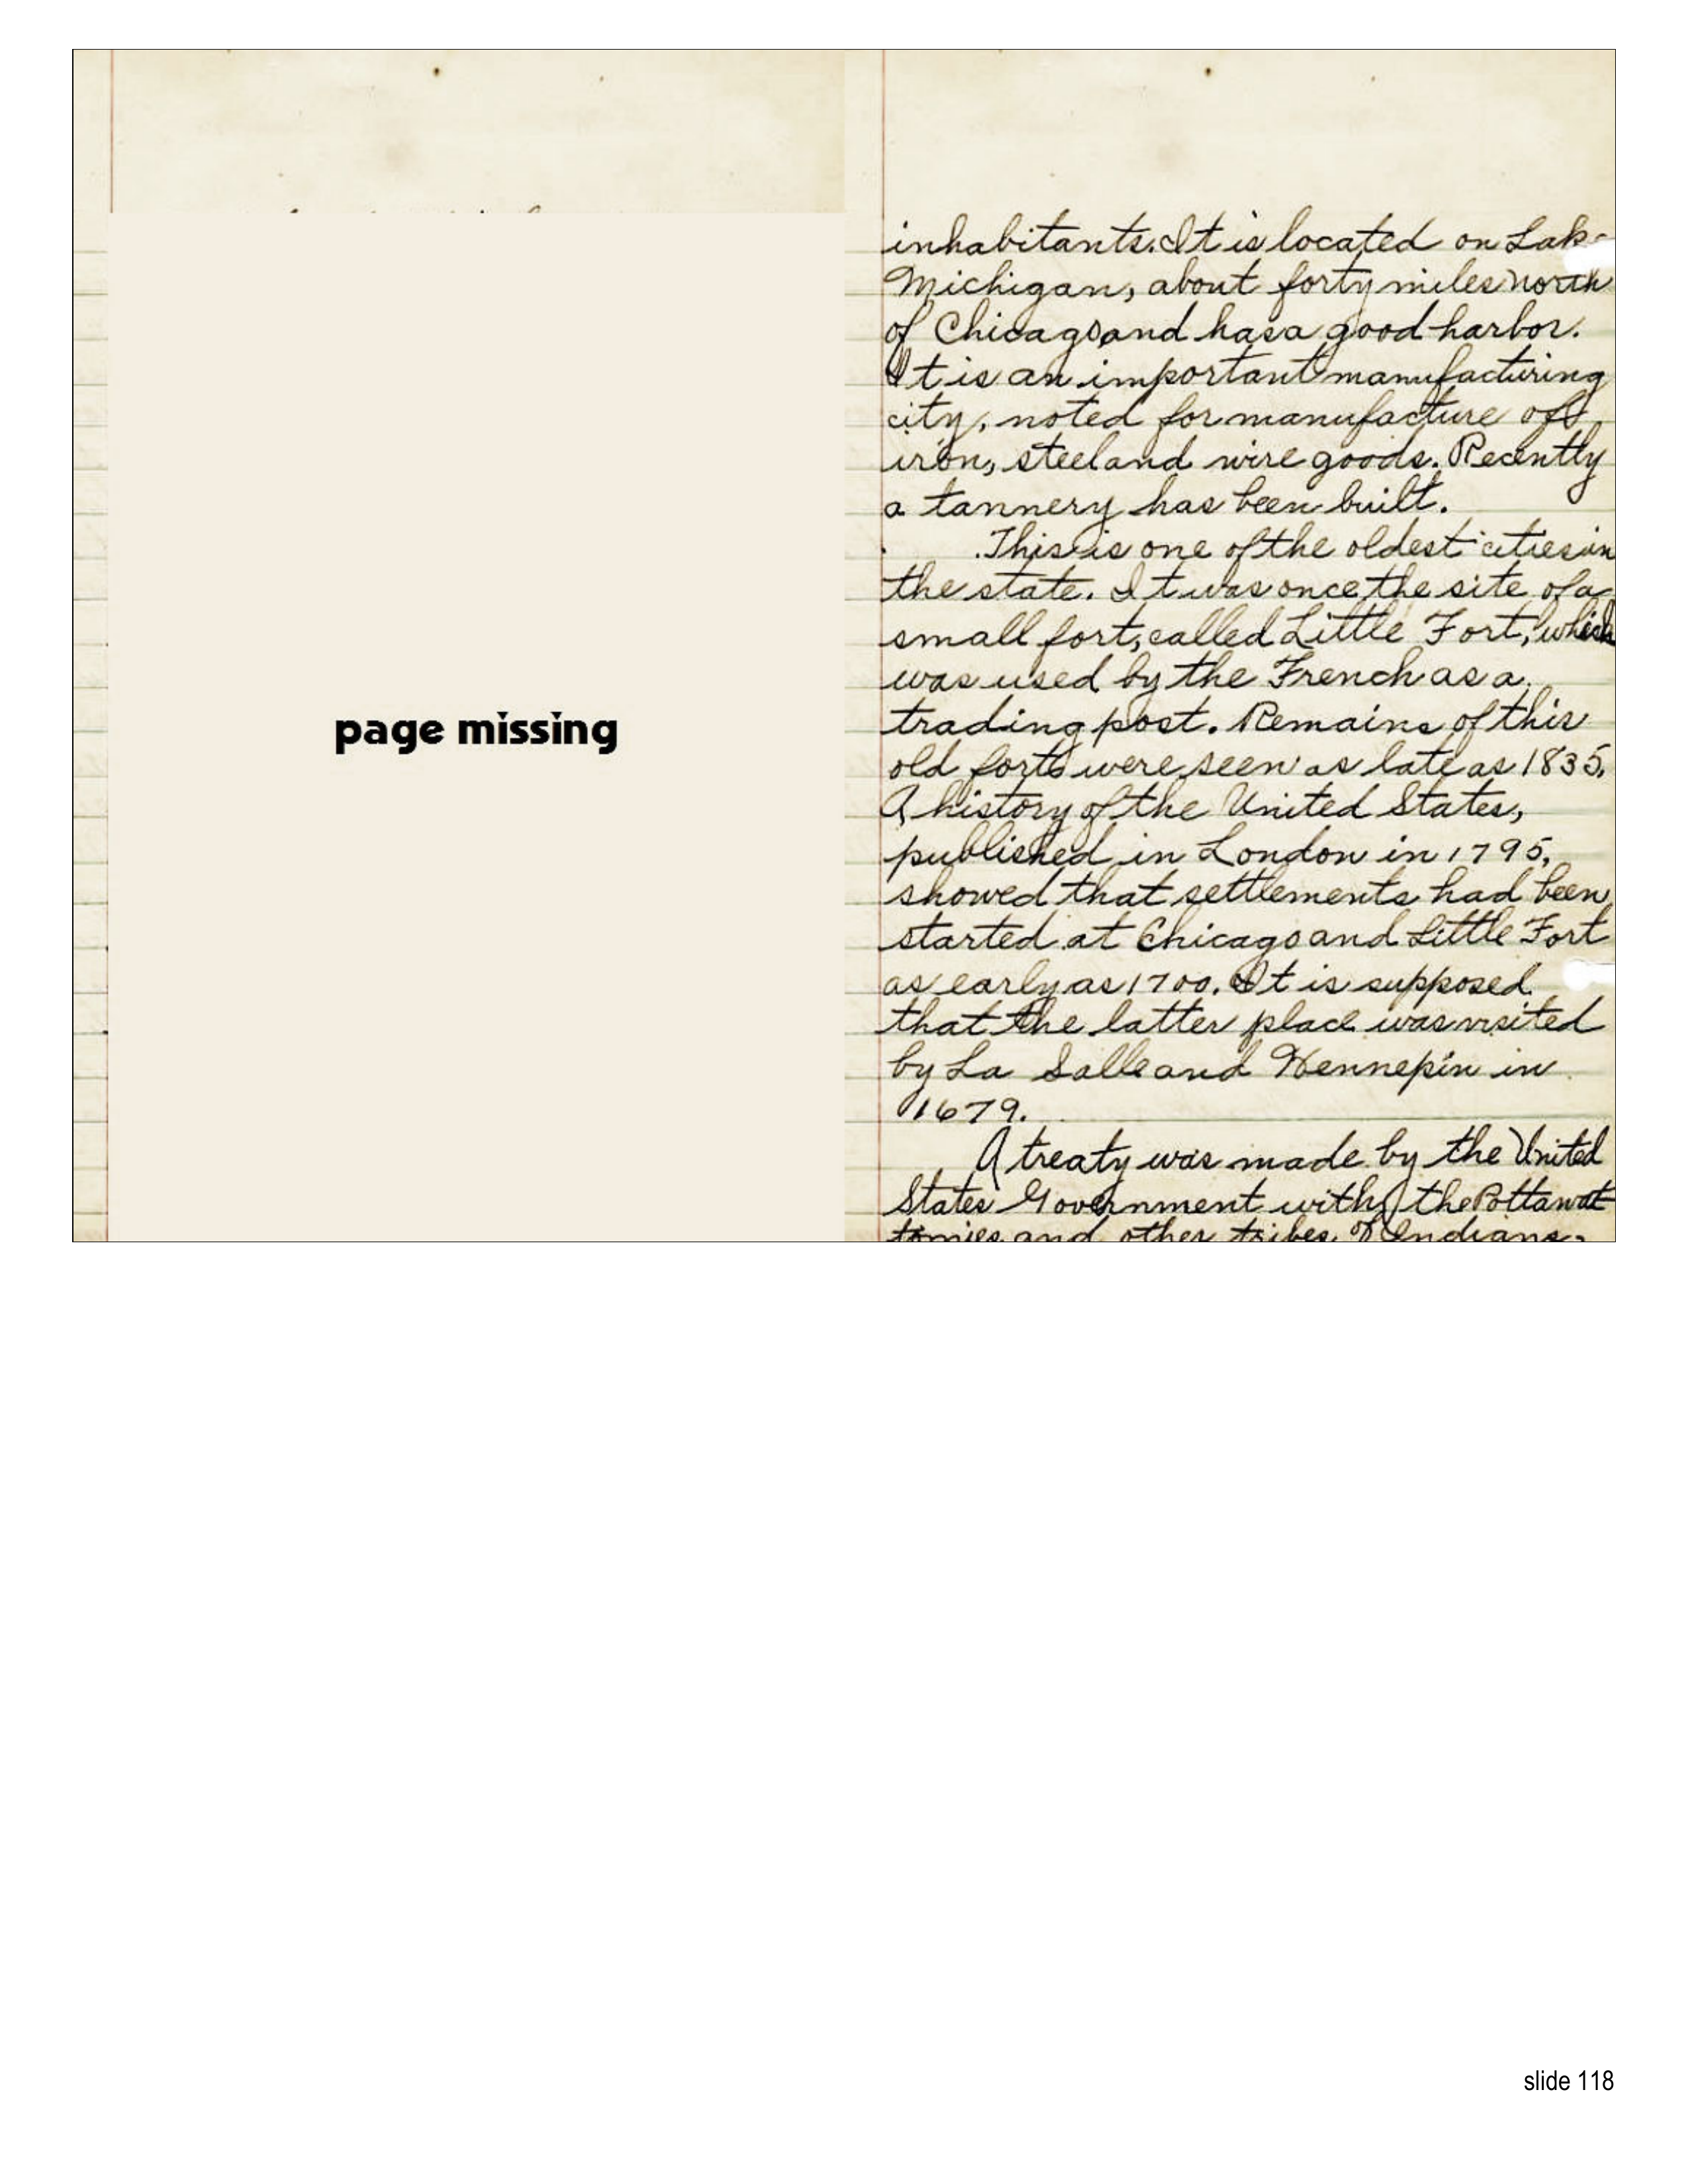 page missing
inhabitants. It is located on Lake
Michigan, about forty miles north
of Chicago and has a good harbor.
It is an important manufacturing
city, noted for manufacture of
iron, steel and wire goods. Recently
a tannery has been built.
This is one of the oldest cities in
the state. It was once the site of a
small fort, called Little Fort, which
was used by the French as a
trading post. Remains of this
old forts were seen as late as 1835.
A history of the United States,
published in London in 1795,
showed that settlements had been
started at Chicago and Little Fort
as early as 1700. It is supposed
that the latter place was visited
by La Salle and Hennepin in
1679.
A treaty was made by the United
States Government with the Pottawat
tomies and other tribes of Indians.
slide 118